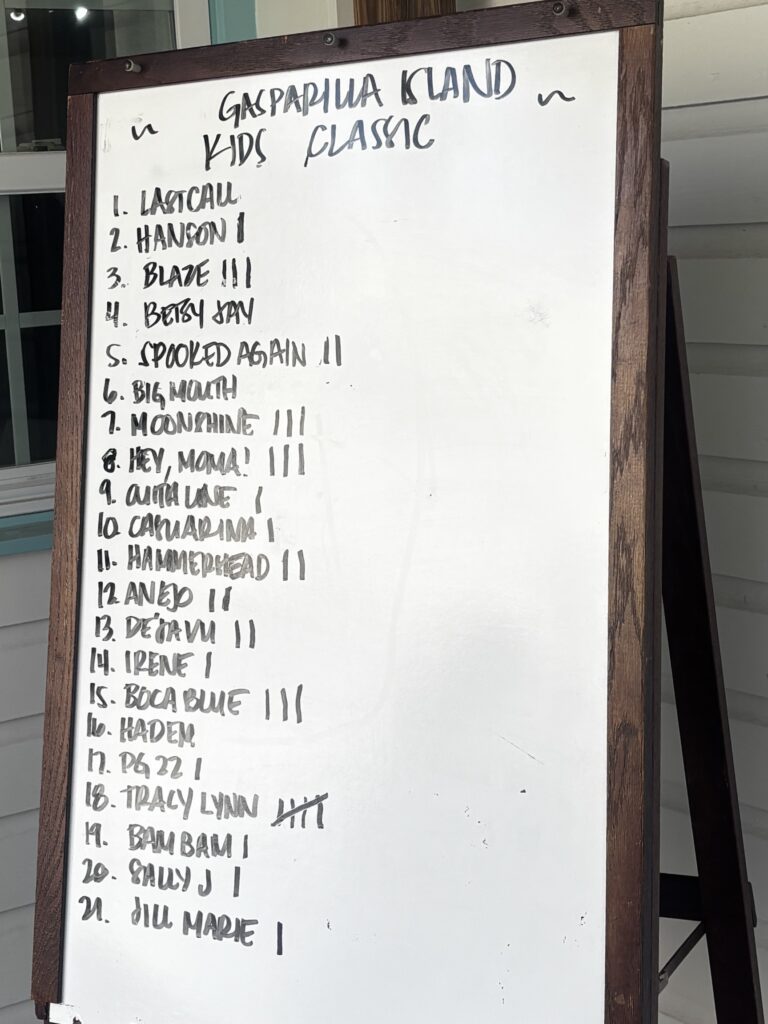 ~ GASPARILLA ISLAND ~
KIDS CLASSIC
1. LAST CALL
2. HANSON I
3. BLAZE III
4. BETSY JAY
5. SPOOKED AGAIN II
6. BIG MOUTH
7. MOONSHINE III
8. HEY, MOMA! III
9. OUTTA LINE I
10. CASUARINA I
11. HAMMERHEAD II
12. ANEJO II
13. DÉJAVU II
14. IRENE I
15. BOCA BLUE III
16. HADEM
17. PG 22 I
18. TRACY LYNN IIII
19. BAM BAM I
20. SALLY J I
21. JILL MARIE I